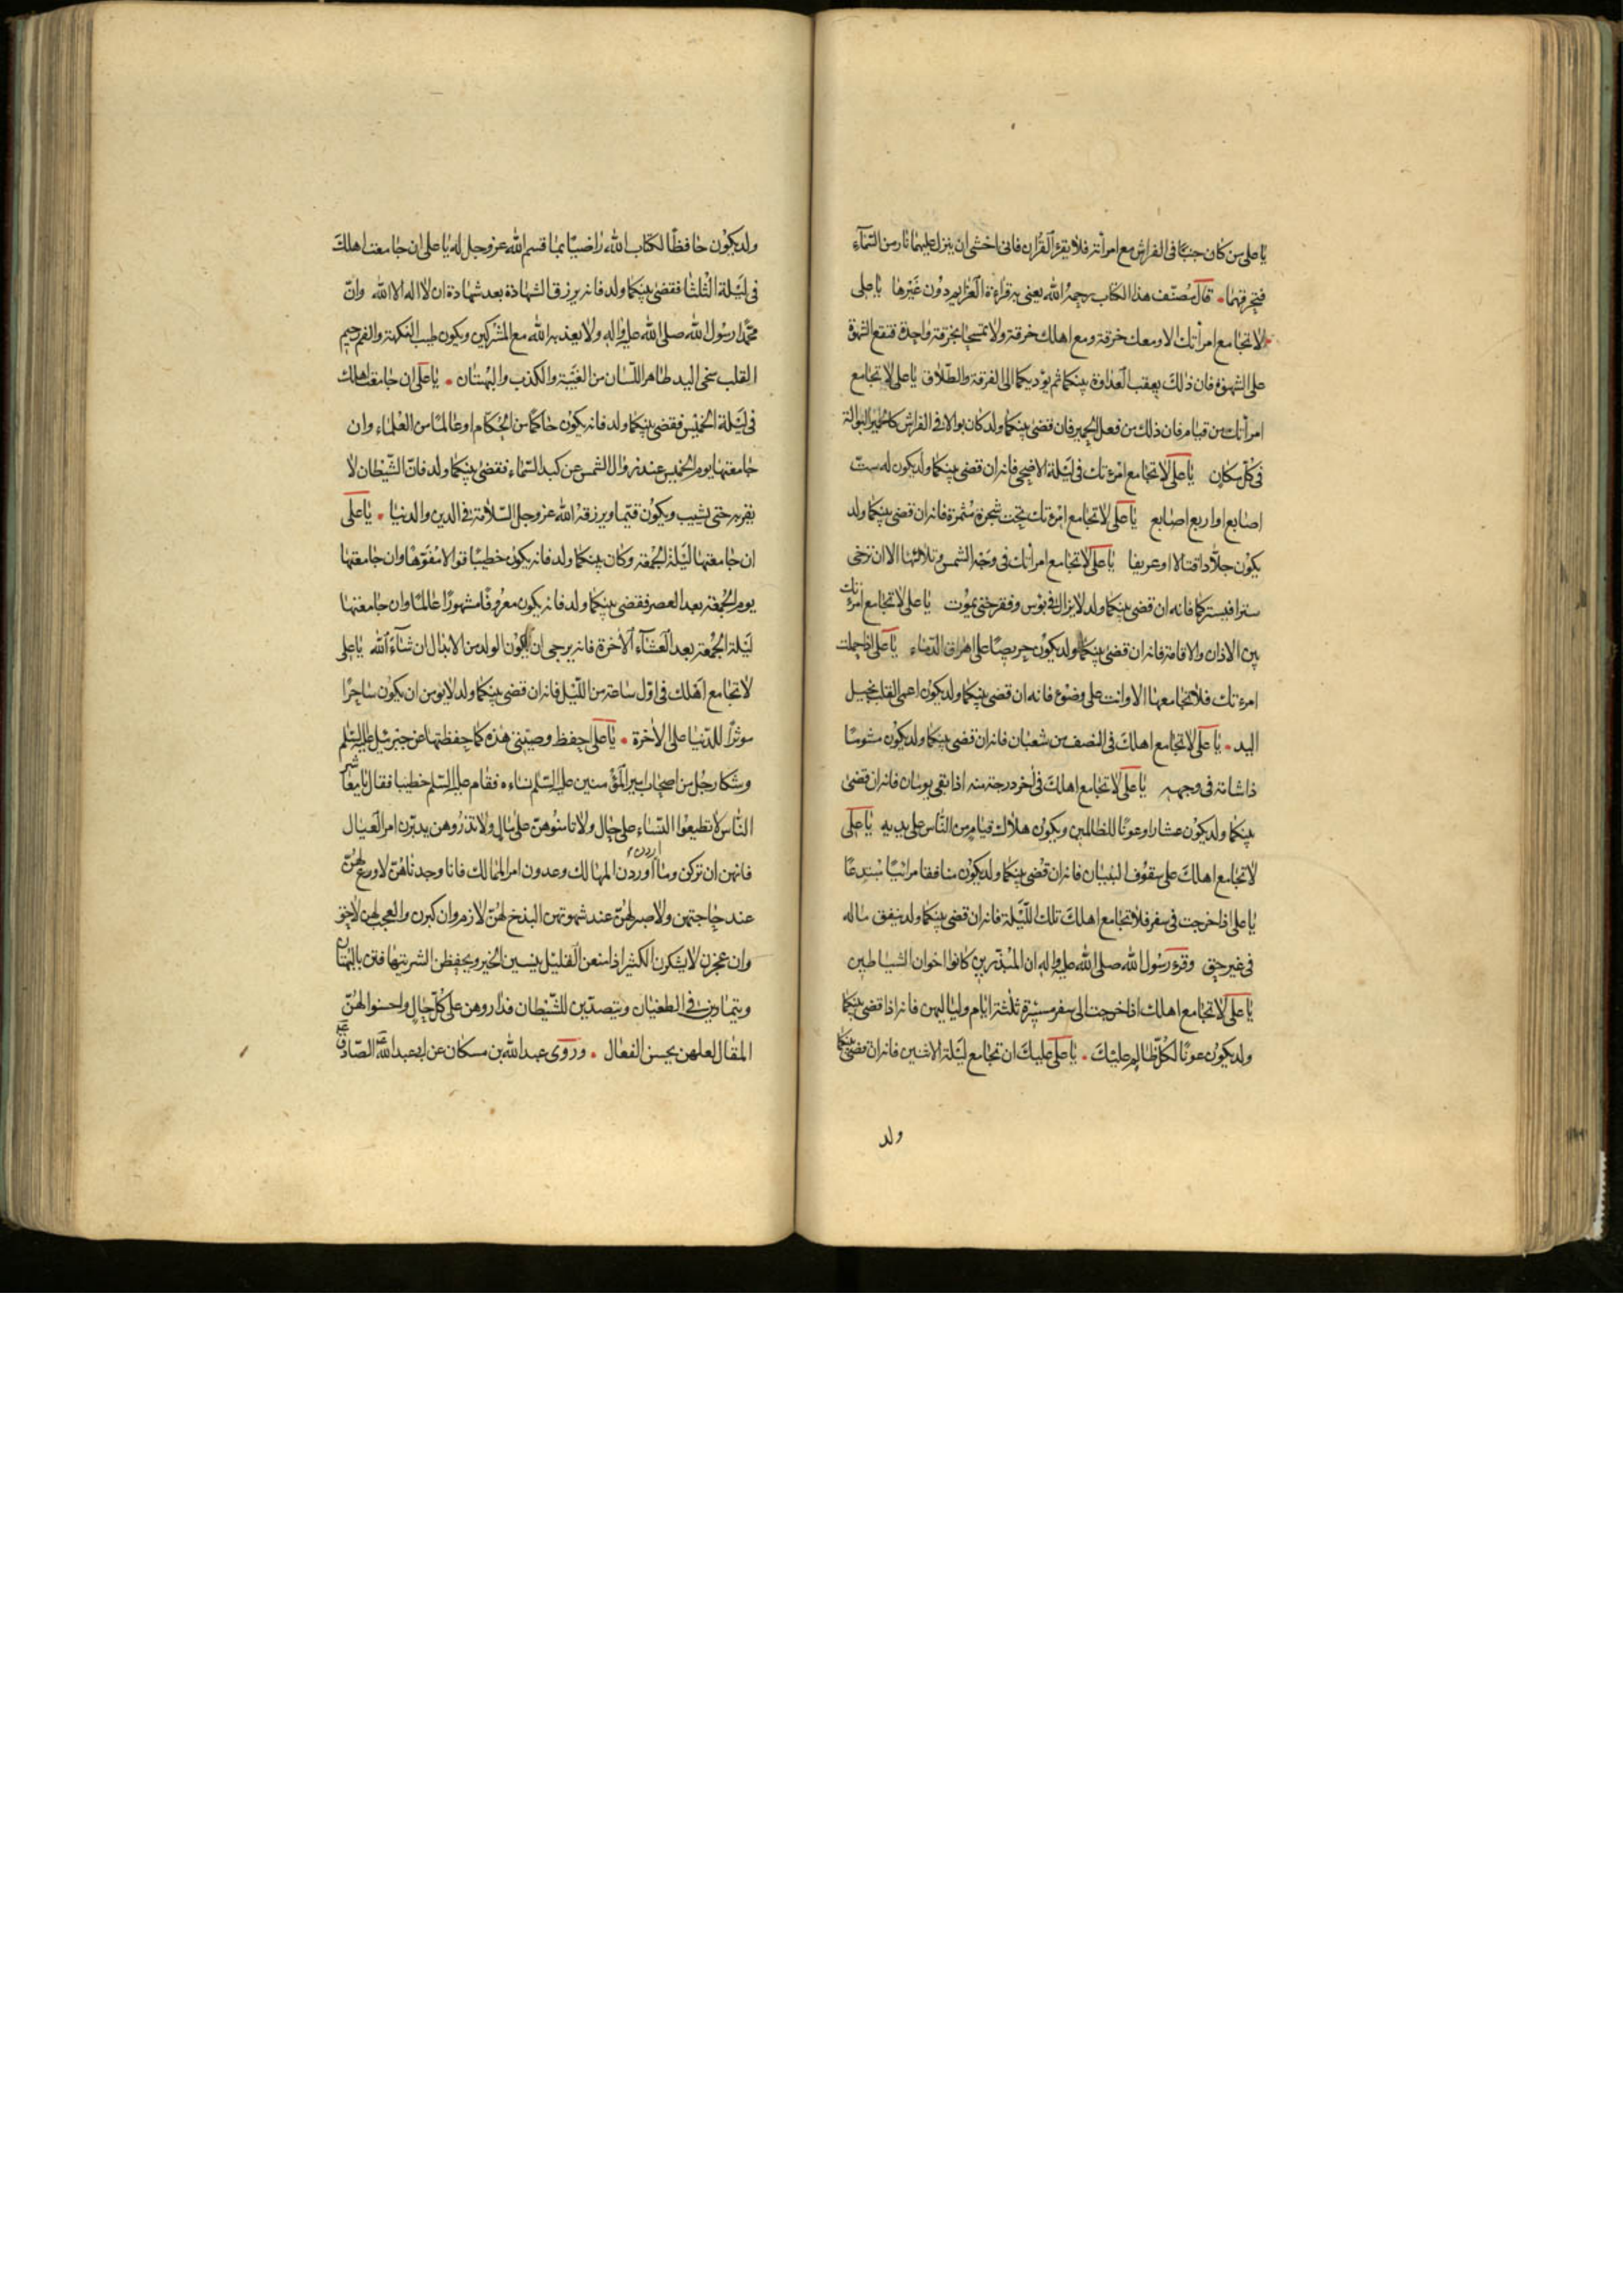 يا على من كان جنبًا فى الفراش مع امرأته فلا يقرء القرآن فانى اخشى ان ينزل عليهما نار من السّمآء
فتحرقهما قال مُصنّف هذا الكتاب رحمه الله يعنى به قراءة العزايم دون غيرها يا على
لا تجامع امرأتك الا ومعك خرقة ومع اهلك خرقة ولا تمسحا بخرقة واحدة فتقع الشهوة
على الشهوة فان ذلك يعقب العداوة بينكما ثم يؤديكما الى الفرقة والطّلاق يا على لا تجامع
امرأتك من قيام فان ذلك من فعل الحمير فان قضى بينكما ولد كان بوالا فى الفراش كالحمير البوالة
فى كلّ مكان يا على لا تجامع امرءتك فى ليلة الاضحى فانه ان قضى بينكما ولد يكون له ستّ
اصابع او اربع اصابع يا على لا تجامع امرءتك تحت شجرة مُثمرة فانه ان قضى بينكما ولد
يكون جلّادا قتالا او عريفا يا على لا تجامع امرأتك فى وجه الشمس وتلائها الا ان ترخى
سترا فيستركما فانه ان قضى بينكما ولد لا يزال فى بؤس وفقر حتى يموت يا على لا تجامع امرءتك
بين الاذان والاقامة فانه ان قضى بينكما ولد يكون حريصًا على اهراق الدّماء يا على اذا حملت
امرءتك فلا تجامعها الا وانت على وضوء فانه ان قضى بينكما ولد يكون اعمى القلب بخيل
اليد يا على لا تجامع اهلك فى النصف من شعبان فانه ان قضى بينكما ولد يكون مشومًا
ذا شامة فى وجهه يا على لا تجامع اهلك فى آخر درجة منه اذا بقى يومان فانه ان قضى
بينكما ولد يكون عشارا وعونًا للظالمين ويكون هلاك فيام من النّاس على يديه يا على
لا تجامع اهلك على سقوف البنيان فانه ان قضى بينكما ولد يكون منافقا مرائيًا مبتدعًا
يا على اذا خرجت فى سفر فلا تجامع اهلك تلك اللّيلة فانه ان قضى بينكما ولد ينفق ماله
فى غير حق وقرء رسول الله صلى الله عليه واله ان المبذّرين كانوا اخوان الشياطين
يا على لا تجامع اهلك اذا خرجت الى سفر مسيرة ثلثة ايّام ولياليهن فانه اذا قضى بينكما
ولد يكون عونًا لكلّ ظالم عليك يا على عليك ان تجامع ليلة الاثنين فانه ان قضى بينكما
ولد
ولد يكون حافظًا لكتاب الله راضيًا بما قسم الله عز وجل له يا على ان جامعت اهلك
فى ليلة الثلثا فقضى بينكما ولد فانه يرزق الشهادة بعد شهادة ان لا اله الا الله وانّ
محمّدا رسول الله صلى الله عليه واله ولا يعذبه الله مع المشركين ويكون طيب النكهة والفم رحيم
القلب سخى اليد طاهر اللّسان من الغيبة والكذب والبهتان يا على ان جامعت اهلك
فى ليلة الخميس فقضى بينكما ولد فانه يكون حاكمًا من الحكام او عالمًا من العلماء وان
جامعتها يوم الخميس عند زوال الشمس عن كبد السّماء فقضى بينكما ولد فانّ الشّيطان لا
يقربه حتى يشيب ويكون قيّما ويرزقه الله عز وجل السّلامة فى الدين والدنيا يا على
ان جامعتها ليلة الجمعة وكان بينكما ولد فانه يكون خطيبًا قوالا مفوّها وان جامعتها
يوم الجمعة بعد العصر فقضى بينكما ولد فانه يكون معروفًا مشهورًا عالمًا وان جامعتها
ليلة الجمعة بعد العشآء الآخرة فانه يرجى ان يكون الولد من الابدال ان شآء الله يا على
لا تجامع اهلك فى اوّل ساعة من اللّيل فانه ان قضى بينكما ولد لا يومن ان يكون ساحرًا
مؤثرًا للدّنيا على الاخرة يا على احفظ وصيّتى هذه كما حفظتها عن جبرئيل عليه السّلم
وشكا رجل من اصحاب امير المؤمنين عليه السّلم نساءه فقام عليه السّلم خطيبا فقال يا معاشر
النّاس لا تطيعوا النّساء على حال ولا تامنوهنّ على مال ولا تذروهن يدبّرن امر العيال
فانهن ان تركن وما اردن اوردن المهالك وعدون امر المالك فانا وجدناهنّ لا ورع لهنّ
عند حاجتهن ولا صبر لهنّ عند شهوتهن البذخ لهنّ لازم وان كبرن والعجب لهن لاحق
وان عجزن لا يشكرن الكثير اذا منعن القليل ينسين الخير ويحفظن الشر يتهافتن بالبهتان
ويتمادين فى الطغيان ويتصدّين للشّيطان فداروهن على كلّ حال واحسنوا لهنّ
المقال لعلهن يحسن الفعال وروى عبد الله بن مسكان عن ابى عبد الله الصّادق